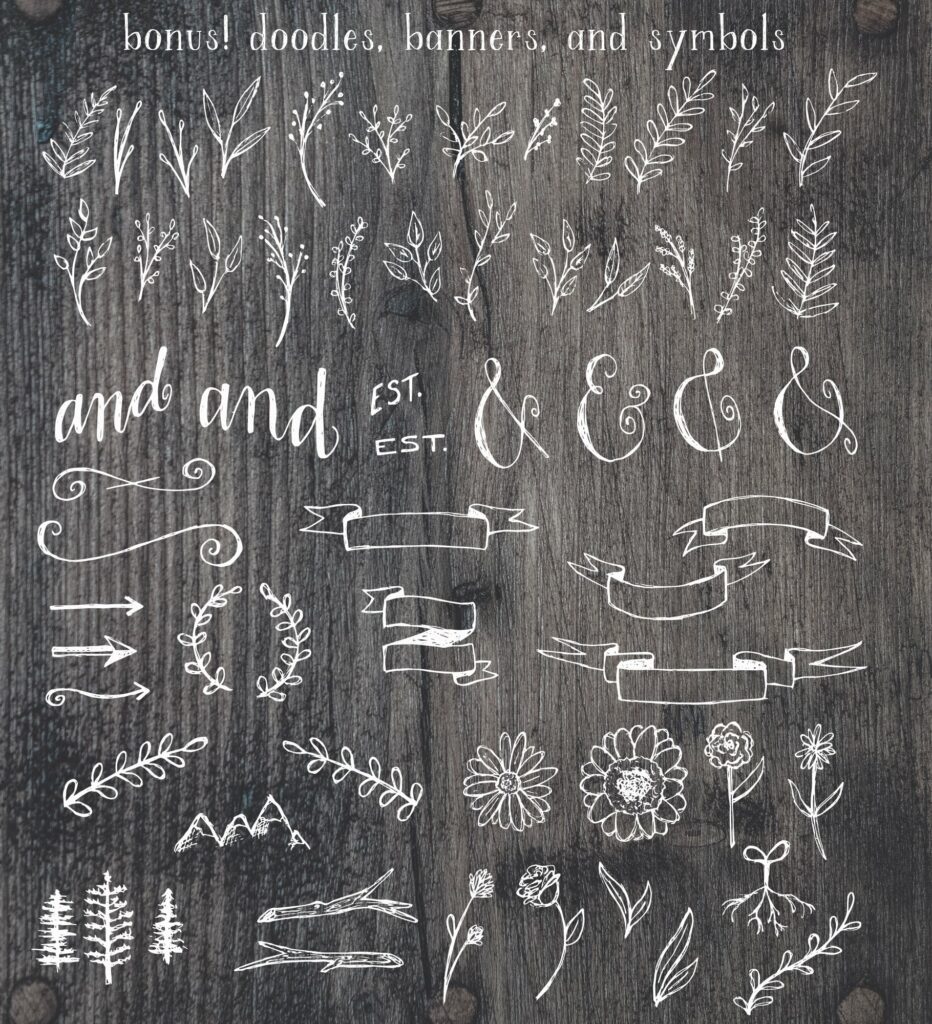 bonus! doodles, banners, and symbols
and and EST. & & & &
EST.